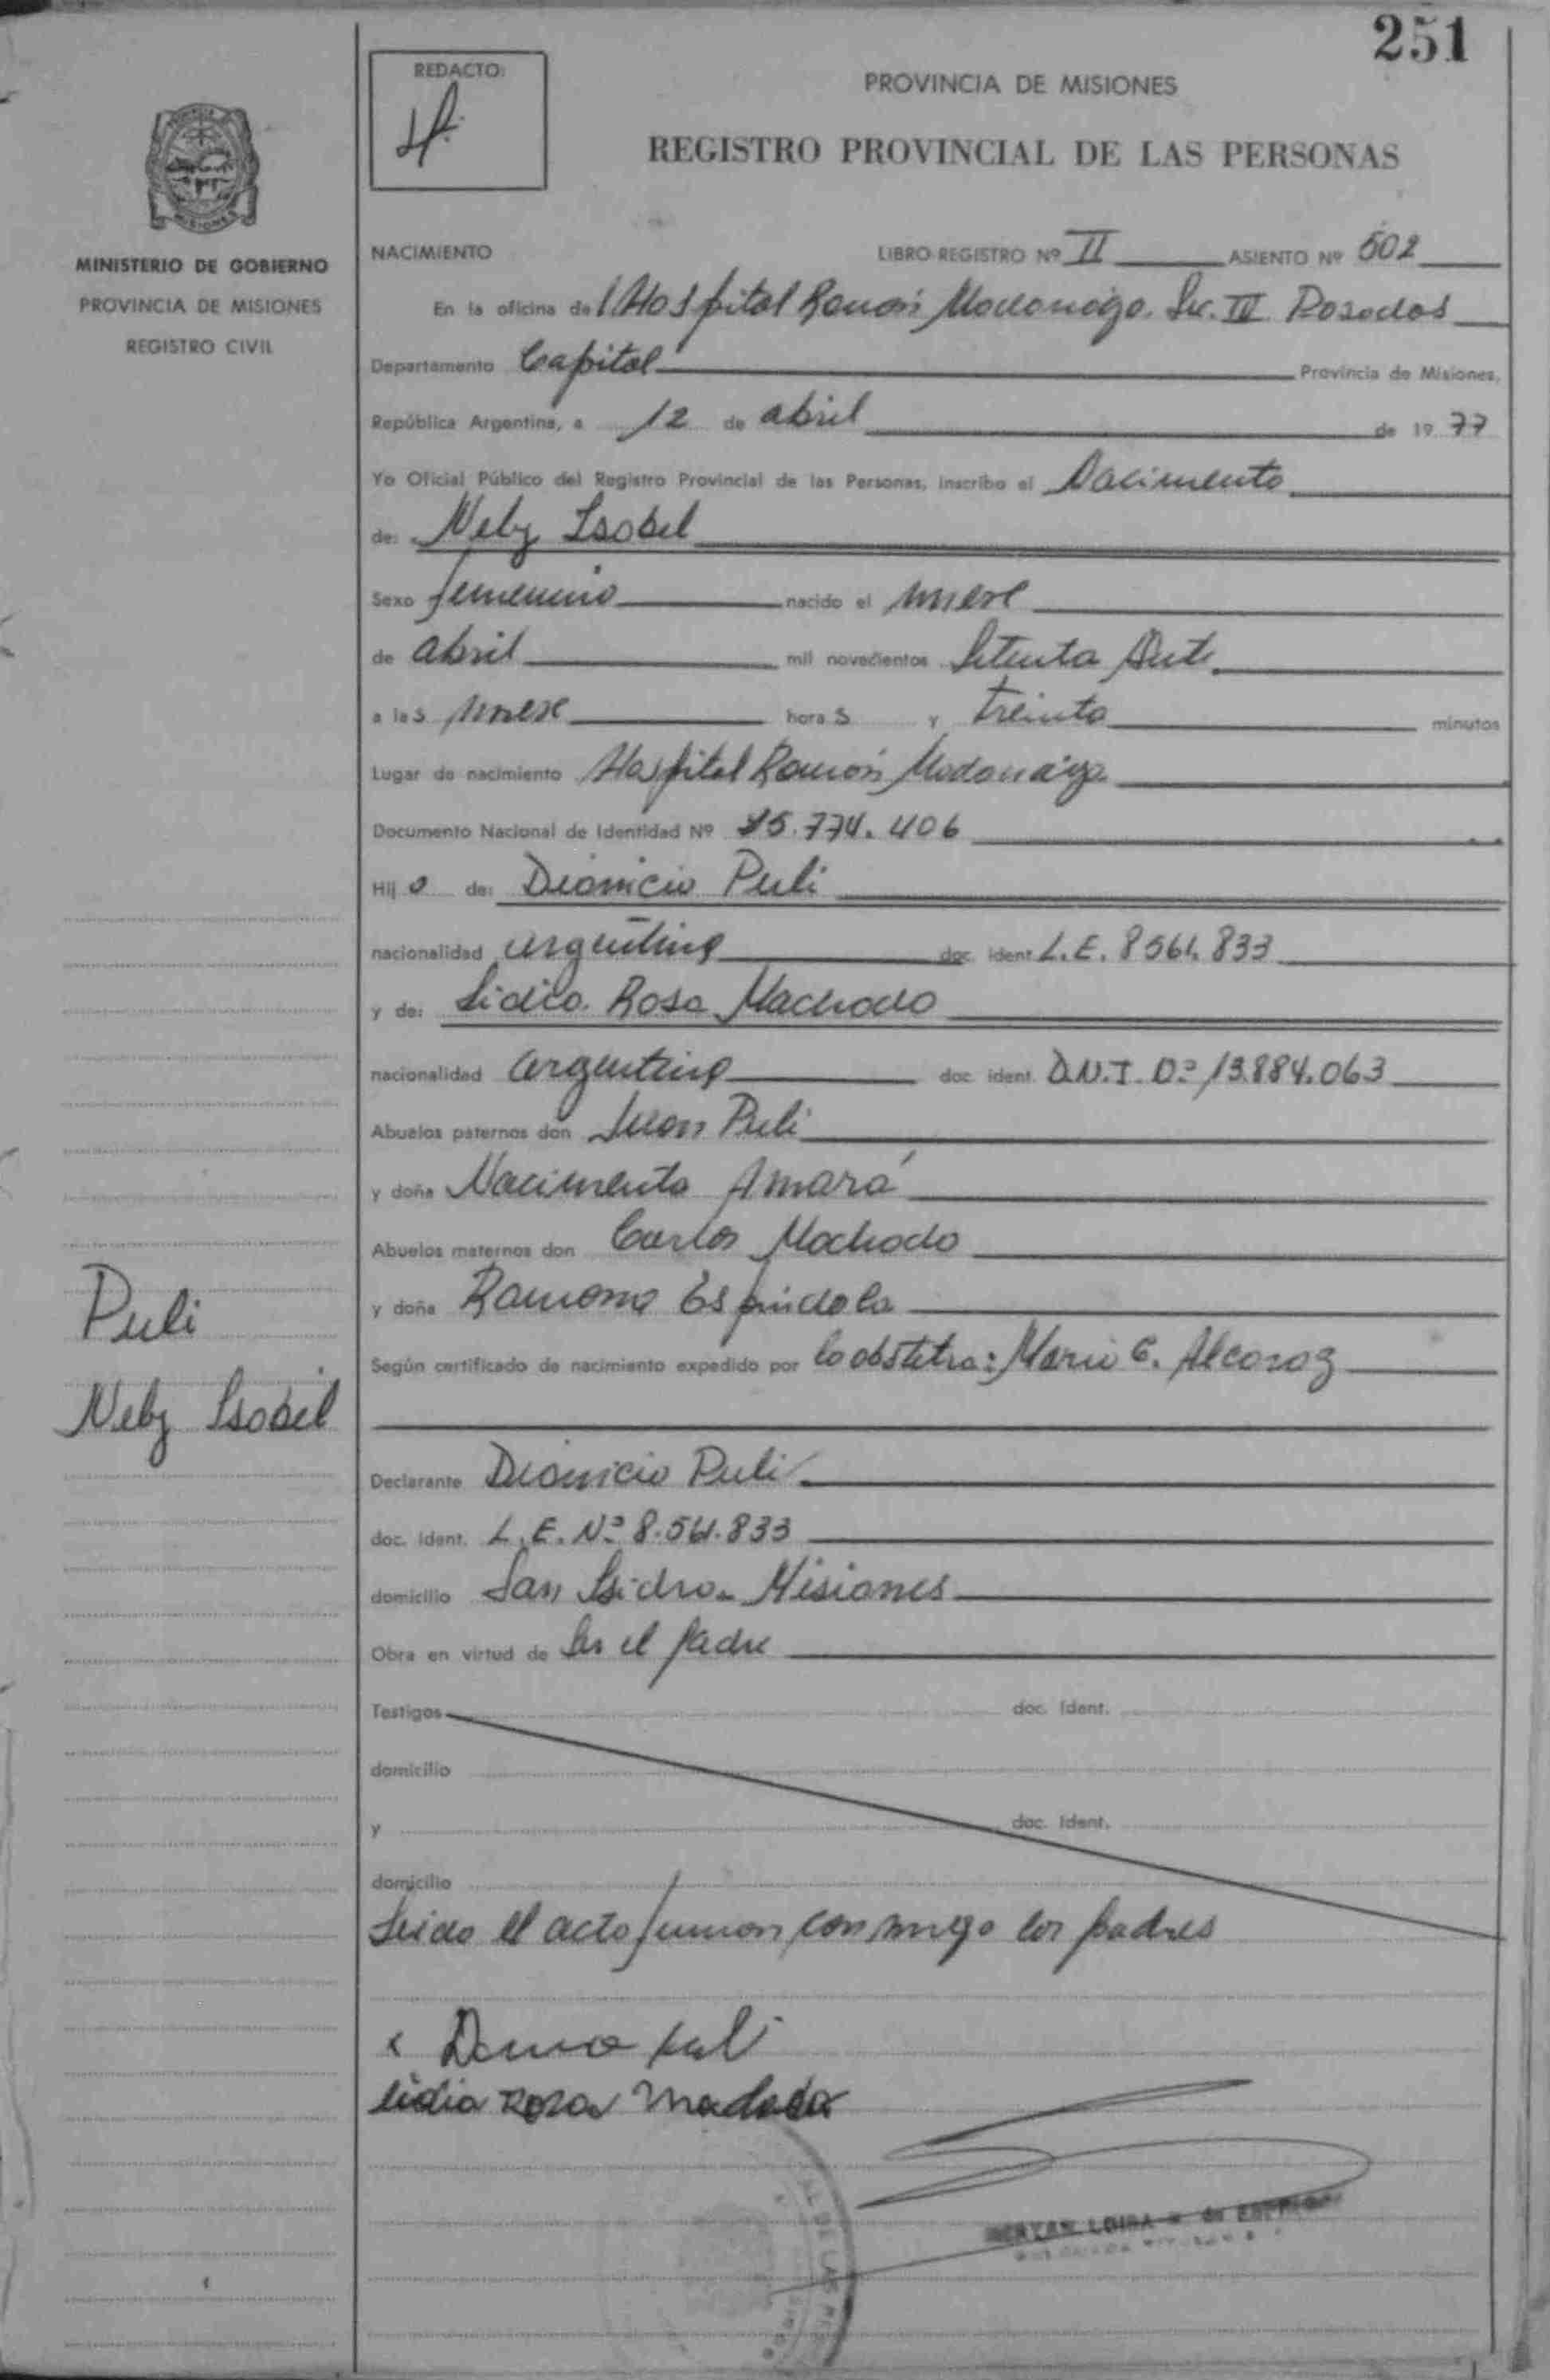 251
REDACTO:
PROVINCIA DE MISIONES
REGISTRO PROVINCIAL DE LAS PERSONAS
MINISTERIO DE GOBIERNO
PROVINCIA DE MISIONES
REGISTRO CIVIL
NACIMIENTO LIBRO REGISTRO Nº II ASIENTO Nº 502
En la oficina del Hospital Ramón Madariaga. Sec. III Posadas
Departamento Capital Provincia de Misiones,
República Argentina, a 12 de abril de 1977
Yo Oficial Público del Registro Provincial de las Personas, inscribo el Nacimiento
de: Nely Isabel
Sexo femenino nacido el nueve
de abril mil novecientos Setenta Siete
a las nueve horas y treinta minutos
Lugar de nacimiento Hospital Ramón Madariaga
Documento Nacional de Identidad Nº 25.774.406
Hija de: Dionicio Puli
nacionalidad argentina doc. ident. L.E. 8561.833
y de: Lidia Rosa Machado
nacionalidad argentina doc. ident. D.N.I. Nº 13.884.063
Abuelos paternos don Juan Puli
y doña Nacimento Amará
Abuelos maternos don Carlos Machado
y doña Ramona Espindola
Según certificado de nacimiento expedido por la obstetra: María C. Alcaraz
Puli
Nely Isabel
Declarante Dionicio Puli
doc. Ident. L.E. Nº 8.561.833
domicilio San Isidro - Misiones
Obra en virtud de Ser el padre
Testigos doc. Ident.
domicilio
y doc. Ident.
domicilio
Leida el acta firman conmigo los padres
Puli
lidia Rosa Machado